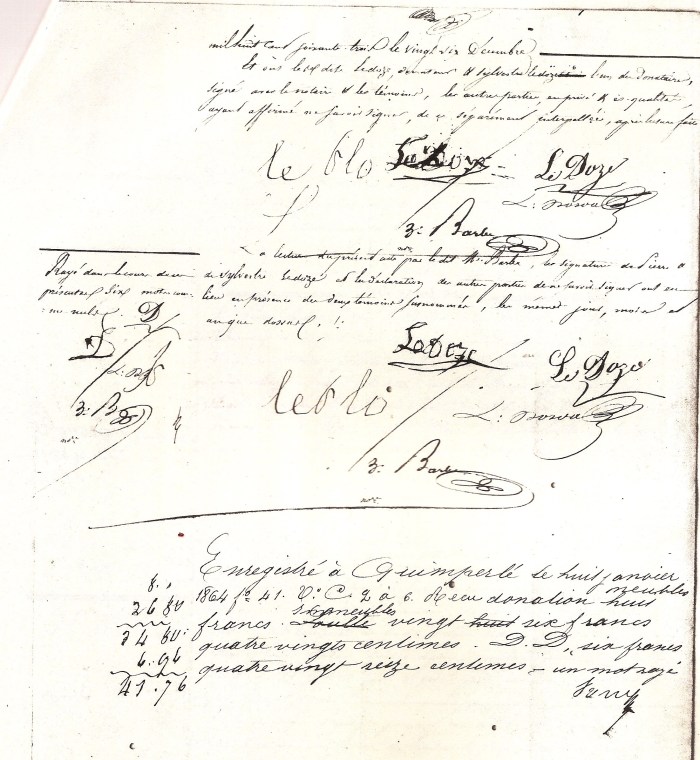 mil huit cent soixante trois le vingt six Décembre
Et ont les dits Ledoze, donateur & Sylvestre Ledoze l'un des Donataires,
signé avec le notaire & les témoins, les autres parties, en privé & ès qualités
ayant affirmé ne savoir signer, de ce séparément interpellées, après lecture faite
le blo Le Doze Le Doze
L: 
3: Barbe
nre
La lecture du présent acte par le dit Me Barbe, les signatures de Pierre &
de Sylvestre Ledoze et la déclaration des autres parties de ne savoir signer ont eu
lieu en présence des deux témoins susnommés, les mêmes jour, mois et
an que dessus, ./.
Rayé dans le cours des
présentes six mots com-
-me nuls. D
L:
3: B
nre
Le Doze Le Doze
le blo L:
3: Barbe
nre
Enregistré à Quimperlé le huit janvier
1864 fo 41. Vo C. 2 à 6. Reçu donation meubles huit
francs. immeubles vingt huit six francs
quatre vingts centimes. D. D. six francs
quatre vingt seize centimes = un mot rayé
8. "
26 80
34 80
6. 96
41. 76